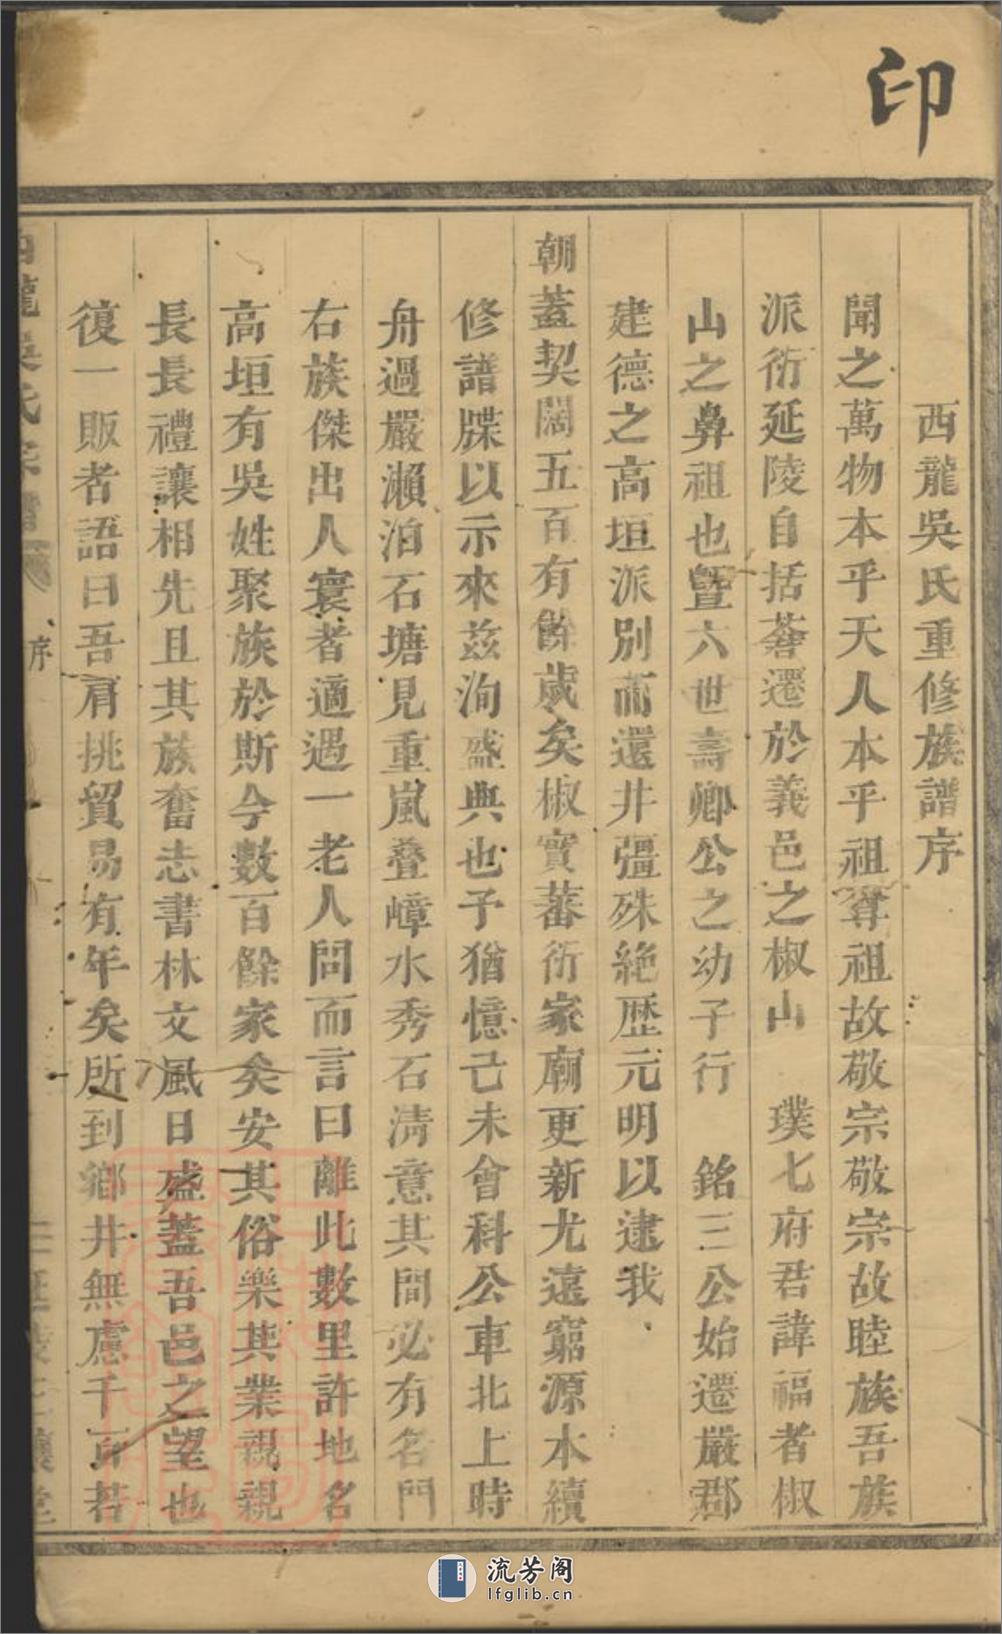 印
西龍吳氏重修族譜序
聞之萬物本乎天人本乎祖尊祖故敬宗敬宗故睦族吾族
派衍延陵自括蒼遷於義邑之椒山 璞七府君諱福者椒
山之鼻祖也曁六世壽卿公之幼子行 銘三公始遷嚴郡
建德之高垣派別而還井彊殊絶歷元明以逮我
朝蓋契闊五百有餘歲矣椒實蕃衍家廟更新尤遠窮源本續
修譜牒以示來玆洵盛典也予猶憶己未會科公車北上時
舟過嚴瀨泊石塘見重嵐叠嶂水秀石清意其間必有名門
右族傑出人寰者適遇一老人問而言曰離此數里許地名
高垣有吳姓聚族於斯今數百餘家矣安其俗樂其業親親
長長禮讓相先且其族奮志書林文風日盛蓋吾邑之望也
復一販者語曰吾肩挑貿易有年矣所到鄉井無慮千百若
龍吳氏宗譜 序
流芳阁
lfglib.cn